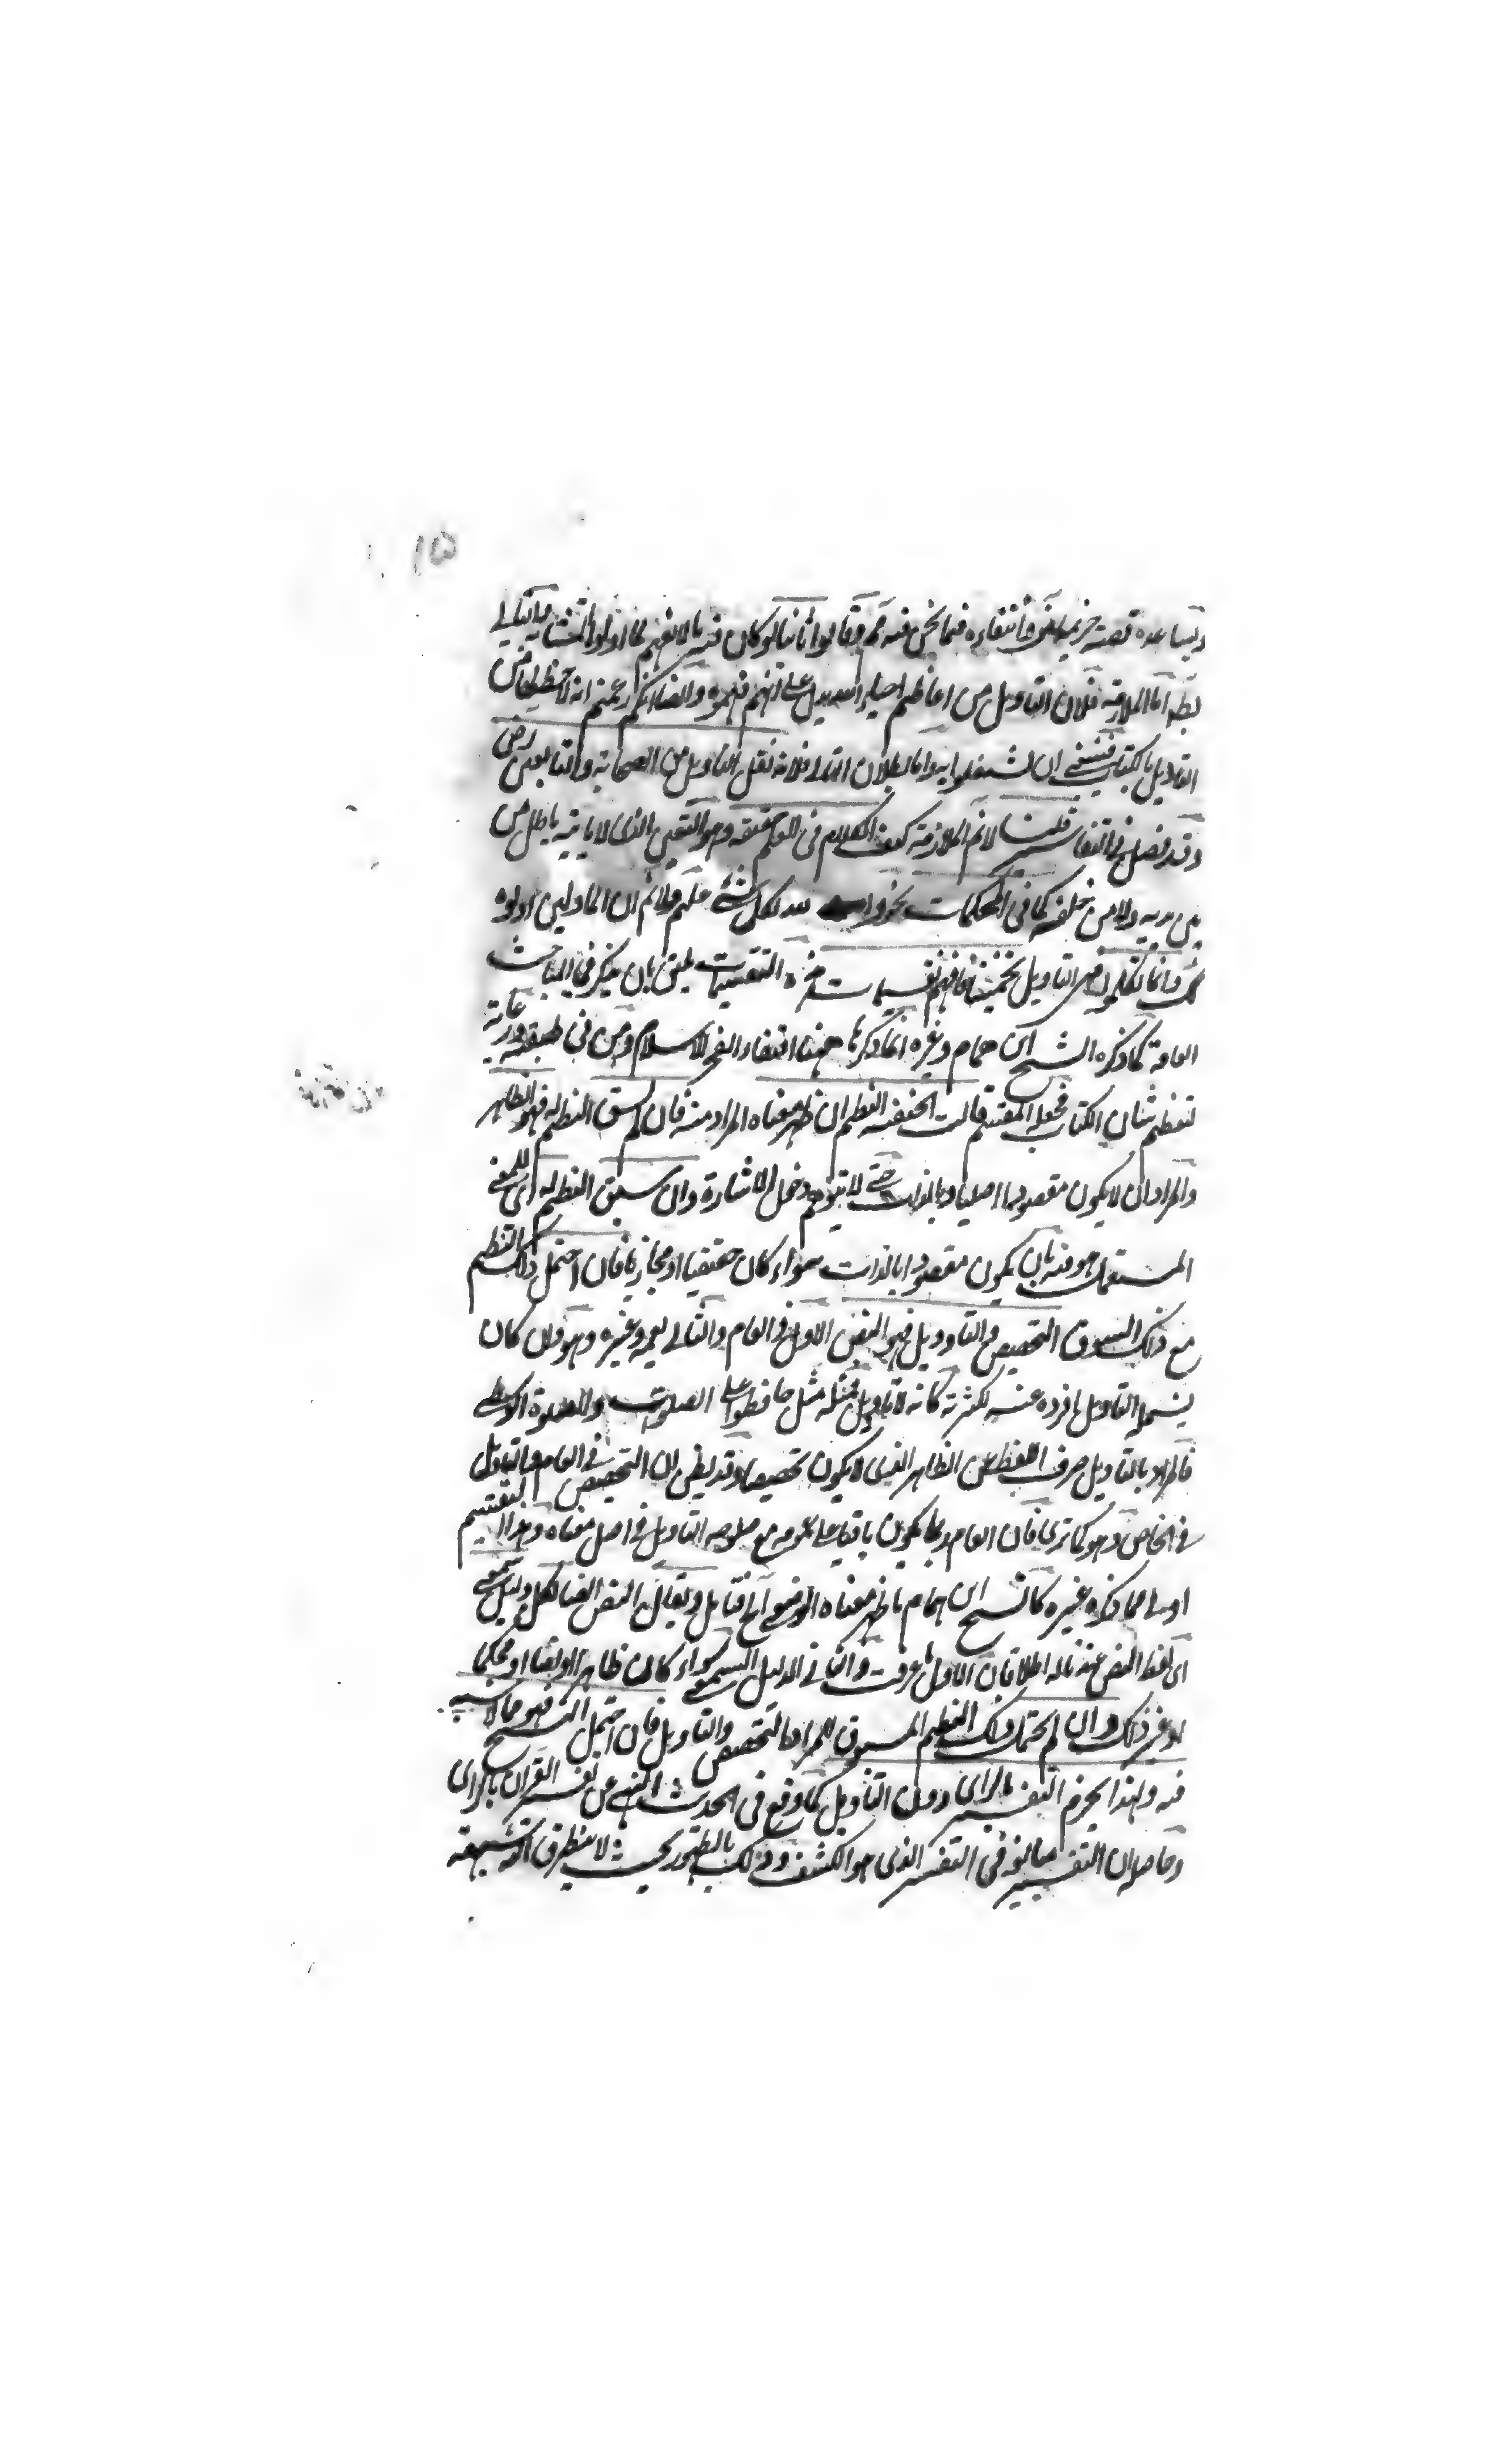 ١٥
ويساعده قصة فيما نحن فيه وقالوا ثانيا لو كان فيه ما لا نفهم لما اولوا المتشابه والتالي
بط اما الملازمة فلان التاويل من يدل على انهم فهموه وايضا انكم زعمتم انه لا حظ من
التاويل فينبغي ان لا يشتغلوا به واما بطلان التالي فلانه نقل التاويل من الصحابة والتابعين رضي
وقد فصل في التفاسير قلنا لا نم الملازمة كيف الكلام في العلم حقيقة وهو اليقين الذي لا ياتيه باطل من
بين يديه ولا من خلفه كما في المحكمات نحو والله بكل شئ عليم ولا نم ان الماولين اولوه
كك وانما تكلموا في التاويل تخمينا فافهم تقسيمات هذه التقسيمات يليق بان يذكر في المباحث
العامة كما ذكره الشيخ ابن همام وغيره انما ذكرها ههنا اقتفاء الفخر الاسلام ومن في طبقته ورعاية
تعظيم شان الكتاب فجعله المقسم قالت الحنفية النظم ان ظهر معناه المراد منه فان لم يسق النظم له فهو الظاهر
والمراد ان لا يكون مقصودا اصليا وبالذات حتى لا يتوهم دخول الاشارة وان سيق النظم له اى للمعنى
المستعمل هو فيه بان يكون مقصودا بالذات سواء كان حقيقيا او مجازيا فان احتمل ذلك النظم
مع ذلك السوق التخصيص والتاويل فهو النص الاول في العام والثاني يعمه وغيره وهو وان كان
يشمله التاويل افرده عنه لكثرته كانه لا تاويل مثله مثل حافظوا على الصلوات والصلوة الوسطى
فالمراد بالتاويل صرف اللفظ عن الظاهر الذى لا يكون تخصيصا وقد يظن ان التخصيص في العام والتاويل
في الخاص وهو كما ترى فان العام ربما يكون باقيا على عمومه مع صلوحه التاويل في اصل معناه وهذا التقسيم
اولى مما ذكره غيره كالشيخ ابن همام ما ظهر معناه الوضعي الخ فتامل ويقال النص ايضا لكل دليل سمعي
اى لفظ النص عندنا له اطلاقان الاول ما عرفت والثاني الدليل السمعي سواء كان ظاهرا او نصا او محكما
او غير ذلك وان لم يحتمل ذلك النظم المسوق للمراد التخصيص والتاويل فان احتمل النسخ فهو
فيه ولهذا يحرم التفسير بالراى دون التاويل كما وقع في الحديث النهى عن تفسير القرآن بالراى
وحاصله ان التفسير مبالغة في التفسر الذى هو الكشف وذلك بالظهور بحيث لا يتطرق اليه شبهة